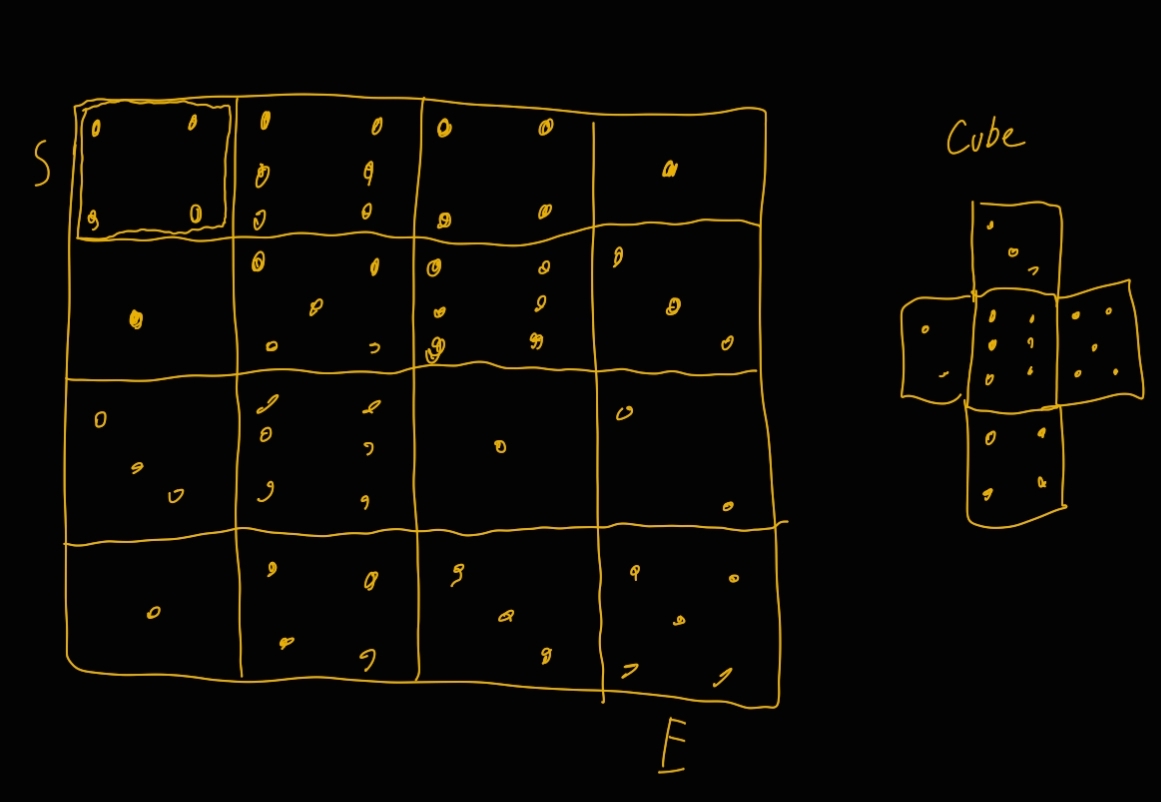 S
Cube
E